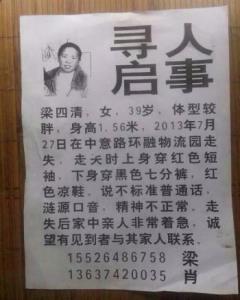 寻人
启事
梁四清，女，39岁，体型较
胖，身高1.56米，2013年7月
27日在中意路环融物流园走
失，走失时上身穿红色短
袖，下身穿黑色七分裤，红
色凉鞋，说不标准普通话，
涟源口音，精神不正常，走
失后家中亲人非常着急，诚
望有见到者与其家人联系。
15526486758 梁
13637420035 肖